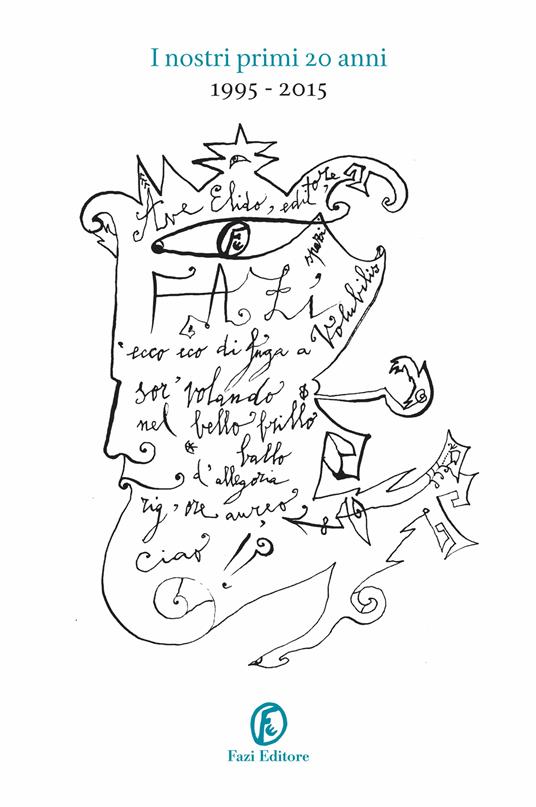 I nostri primi 20 anni
1995 - 2015
Ave Elido, editore,
Fe
spazi
FAZI
Volubilis
ecco eco di fuga a
sor' volando
nel bello brillo
ballo
d'allegoria
rig, ore aureo
ciao !?
Fe
Fazi Editore